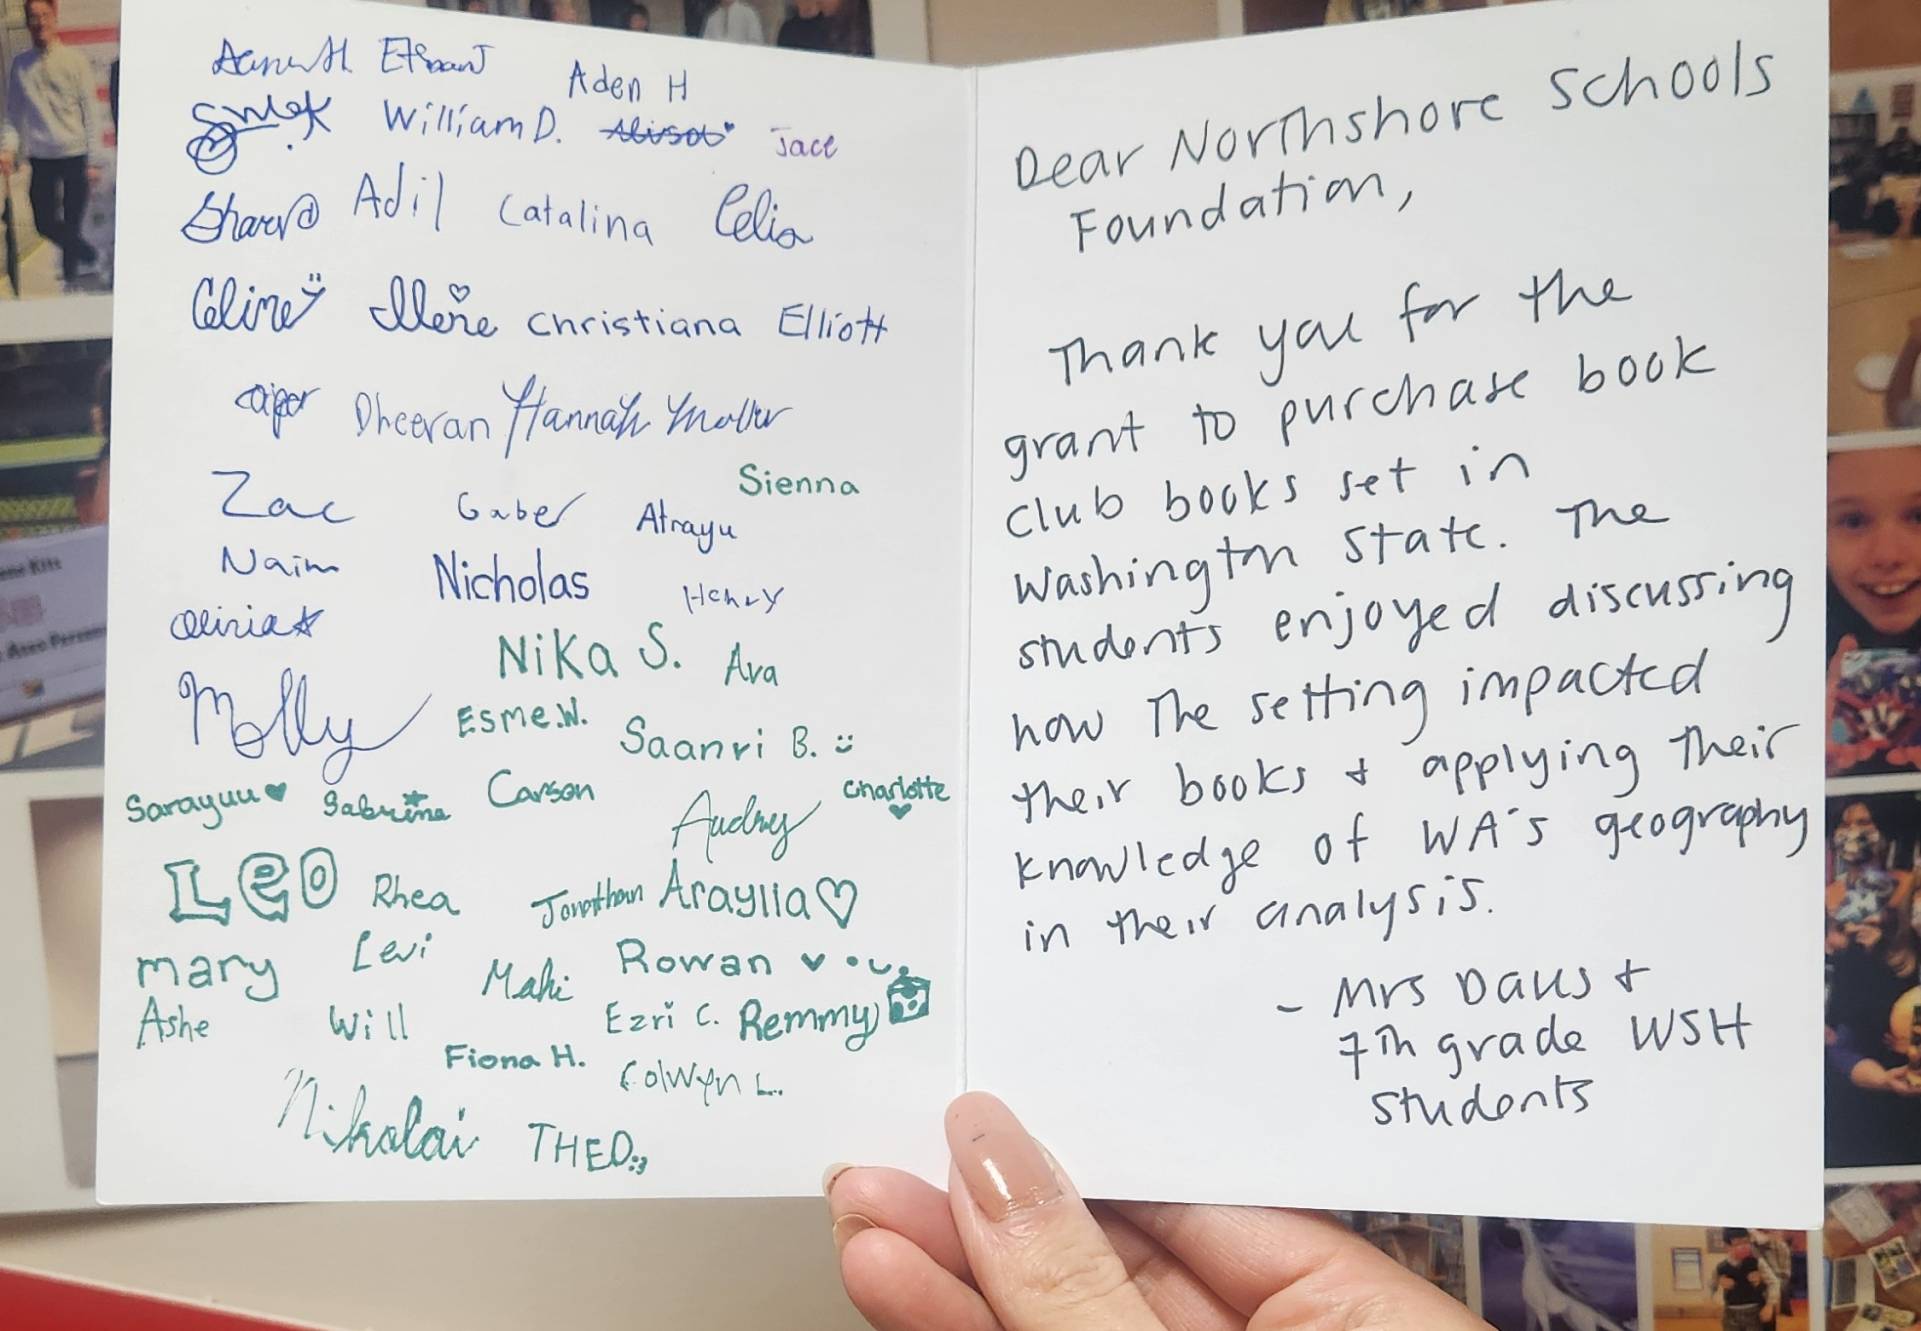 Ethan J Aden H
William D. Jace
Adil Catalina Celia
Celine Christiana Elliott
Dheeran Hannah
Sienna
Zac Gabe Atrayu
Naim Nicholas Henry
Olivia
Nika S. Ava
Molly Esme.W. Saanvi B.
Sarayuu Sabrina Carson Audrey Charlotte
Leo Rhea Jonathan Araylia
mary Levi Mahi Rowan
Ashe Will Ezri C. Remmy
Fiona H. Colwyn L.
Nikolai THEO
Dear Northshore Schools
Foundation,
Thank you for the
grant to purchase book
club books set in
Washington State. The
students enjoyed discussing
how the setting impacted
their books & applying their
knowledge of WA's geography
in their analysis.
- Mrs Daus &
7th grade WSH
students